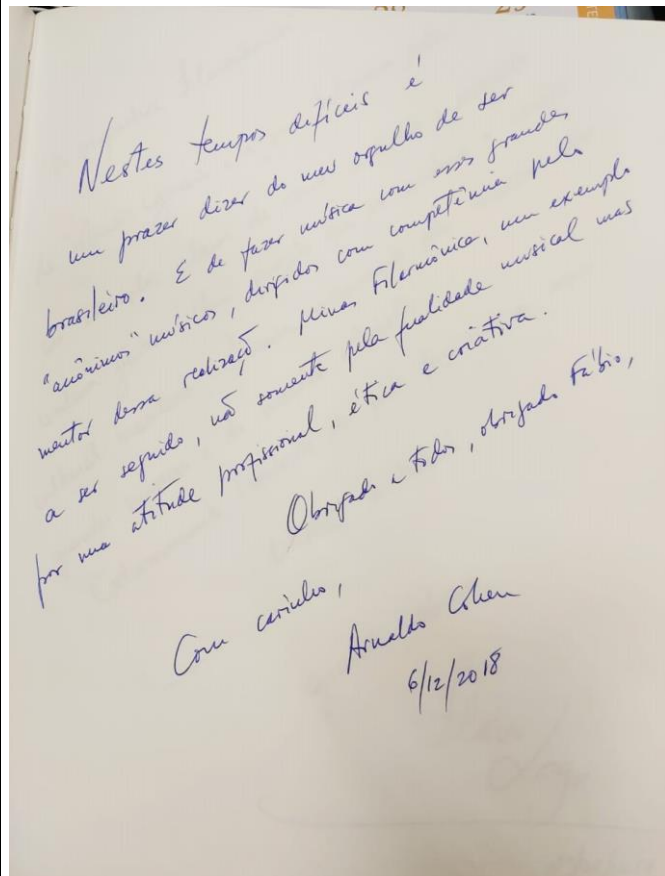 Nestes tempos difíceis é
um prazer dizer do meu orgulho de ser
brasileiro. E de fazer música com esses grandes
"anônimos" músicos, dirigidos com competência pelo
mentor dessa realização. Minas Filarmônica, um exemplo
a ser seguido, não somente pela qualidade musical mas
por uma atitude profissional, ética e criativa.
Obrigado a todos, obrigado Fábio,
Com carinho,
Arnaldo Cohen
6/12/2018